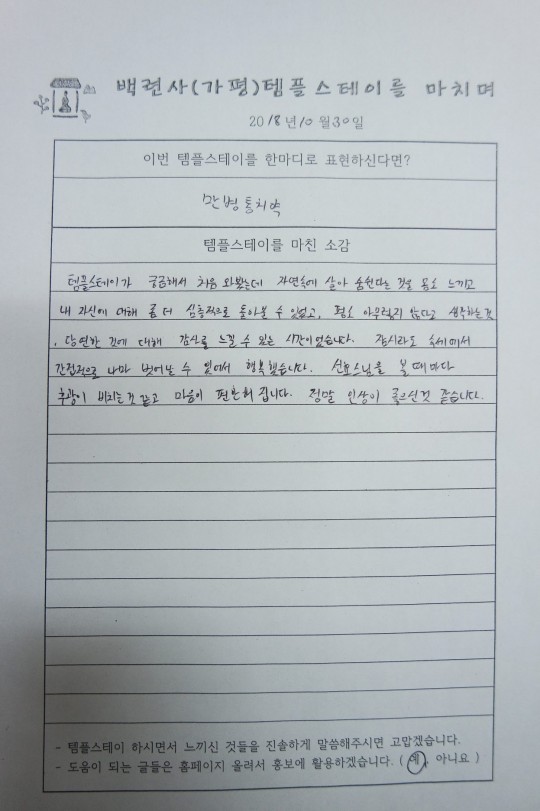 백련사(가평)템플스테이를 마치며
2018년10월30일
이번 템플스테이를 한마디로 표현하신다면?
만병통치약
템플스테이를 마친 소감
템플스테이가 궁금해서 처음 와봤는데 자연속에 살아 숨쉰다는 것을 몸소 느끼고
내 자신에 대해 좀 더 심층적으로 돌아볼 수 있었고, 평소 아무렇지 않다고 생각하는 것
, 당연한 것에 대해 감사를 느낄 수 있는 시간이었습니다. 잠시라도 속세에서
간접적으로 나마 벗어날 수 있어서 행복했습니다. 스님을 볼 때마다
후광이 비치는것 같고 마음이 편안해 집니다. 정말 인상이 좋으신것 같습니다.
- 템플스테이 하시면서 느끼신 것들을 진솔하게 말씀해주시면 고맙겠습니다.
- 도움이 되는 글들은 홈페이지 올려서 홍보에 활용하겠습니다. ( 예, 아니요 )